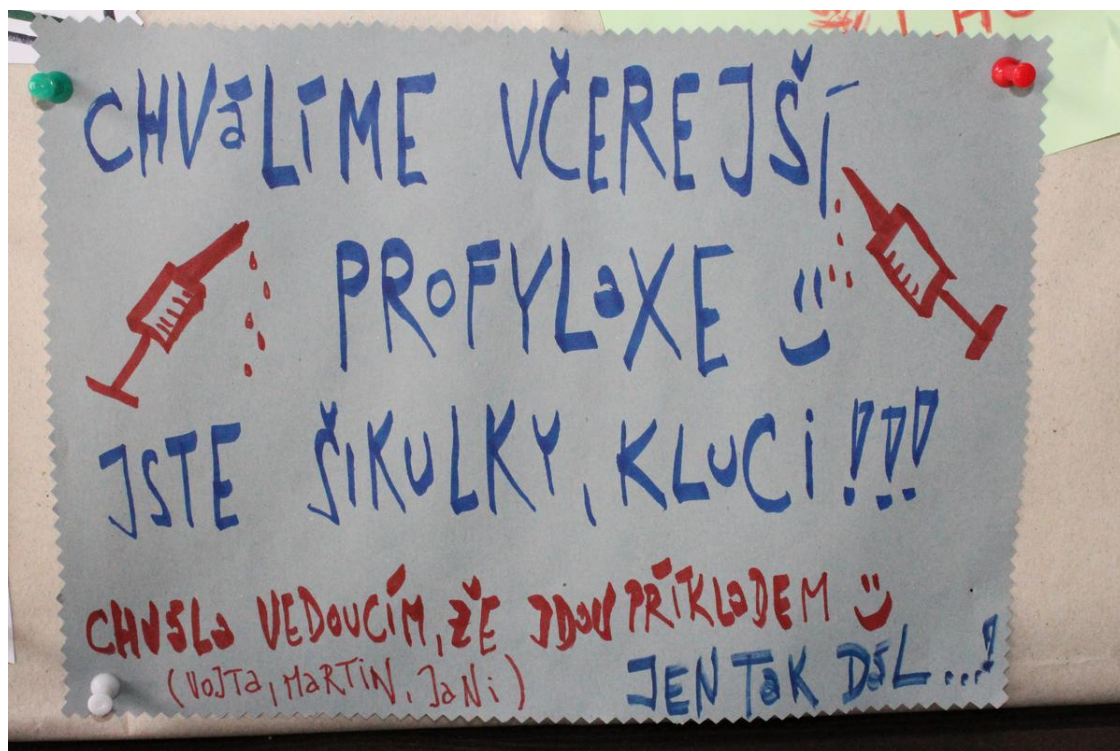 CHVáLÍME VČEREJŠÍ
PROFYLaXE
JSTE ŠIKULKY, KLUCI!!!
CHVáLa VEDOUCÍM, ŽE JDOU PŘÍKLaDEM
(VOJTa, MaRTIN, JaNi)
JEN TaK DáL...!